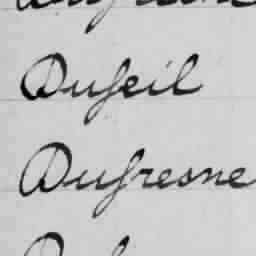 Dufeil
Dufresne